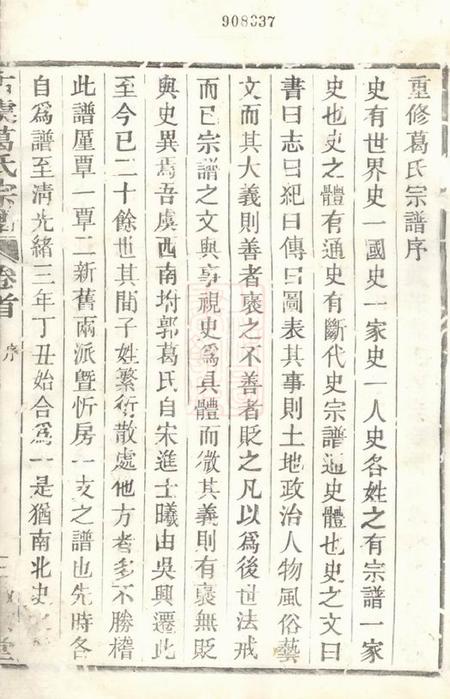 908337
重修葛氏宗譜序
史有世界史一國史一家史一人史各姓之有宗譜一家
史也史之體有通史有斷代史宗譜通史體也史之文曰
書曰志曰犯曰傳曰圖表其事則土地政治人物風俗藝
文而其大義則善者褒之不善者貶之凡以為後世法戒
而已宗譜之文與事視史為具體而微其義則有褒無貶
與史異焉吾虞西南坿郭葛氏自宋進士曦由吳興遷此
至今已二十餘世其間子姓繁衍散處他方者多不勝稽
此譜厪覃一覃二新舊兩派曁忻房一支之譜也先時各
自為譜至淸光緒三年丁丑始合為一是猶南北史
古虞葛氏宗譜 卷首 序
堂